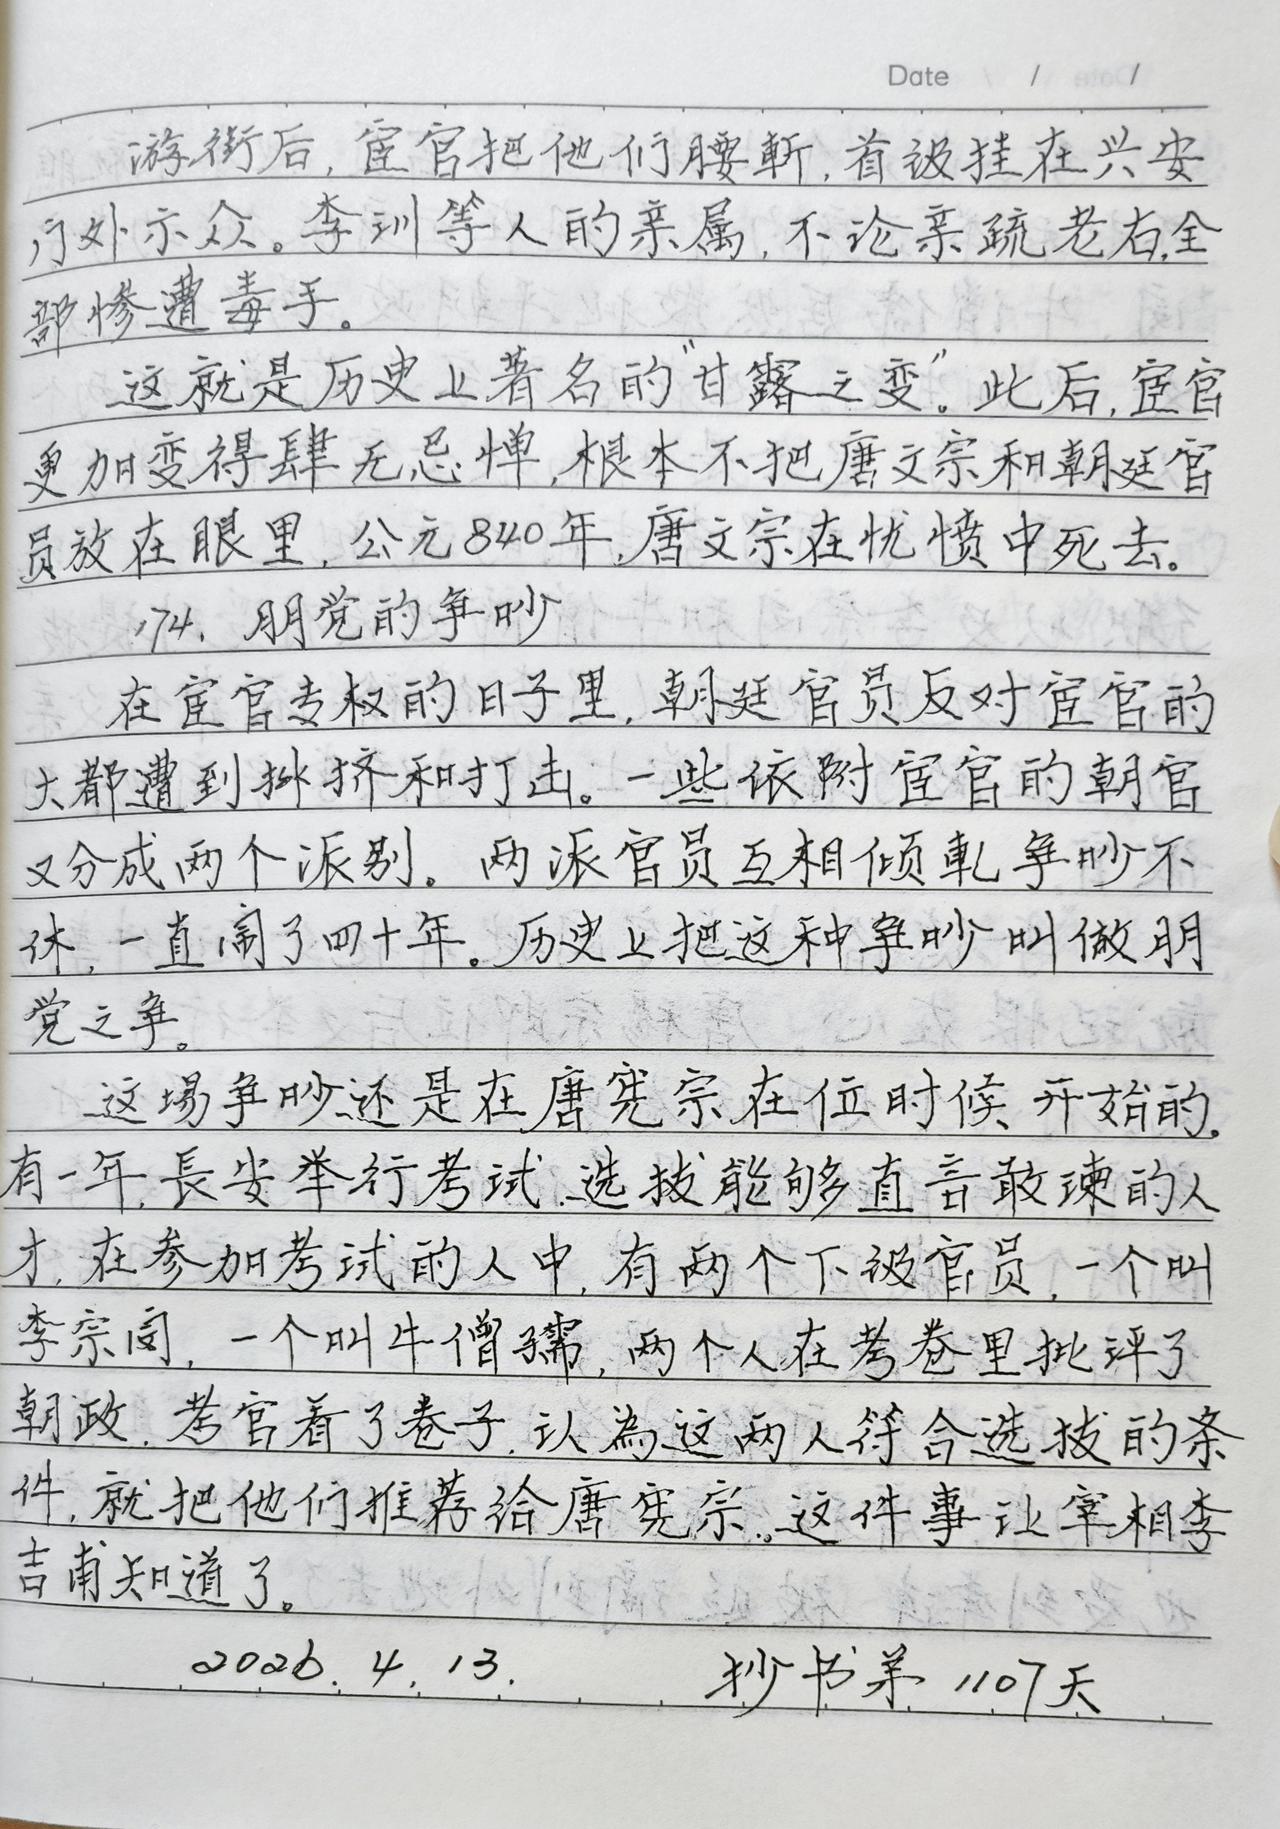 Date / /
游街后，宦官把他们腰斩，首级挂在兴安
门外示众。李训等人的亲属，不论亲疏老右，全
部惨遭毒手。
这就是历史上著名的“甘露之变”。此后，宦官
更加变得肆无忌惮，根本不把唐文宗和朝廷官
员放在眼里，公元840年，唐文宗在忧愤中死去。
174、朋党的争吵
在宦官专权的日子里，朝廷官员反对宦官的
大都遭到排挤和打击。一些依附宦官的朝官
又分成两个派别。两派官员互相倾轧争吵不
休，一直闹了四十年。历史上把这种争吵叫做朋
党之争。
这場争吵还是在唐宪宗在位时候开始的。
有一年，長安举行考试，选拔能够直言敢諫的人
才，在参加考试的人中，有两个下级官员，一个叫
李宗闵，一个叫牛僧孺，两个人在考卷里批评了
朝政，考官看了卷子，认為这两人符合选拔的条
件，就把他们推荐给唐宪宗。这件事让宰相李
吉甫知道了。
2026.4.13. 抄书第1107天